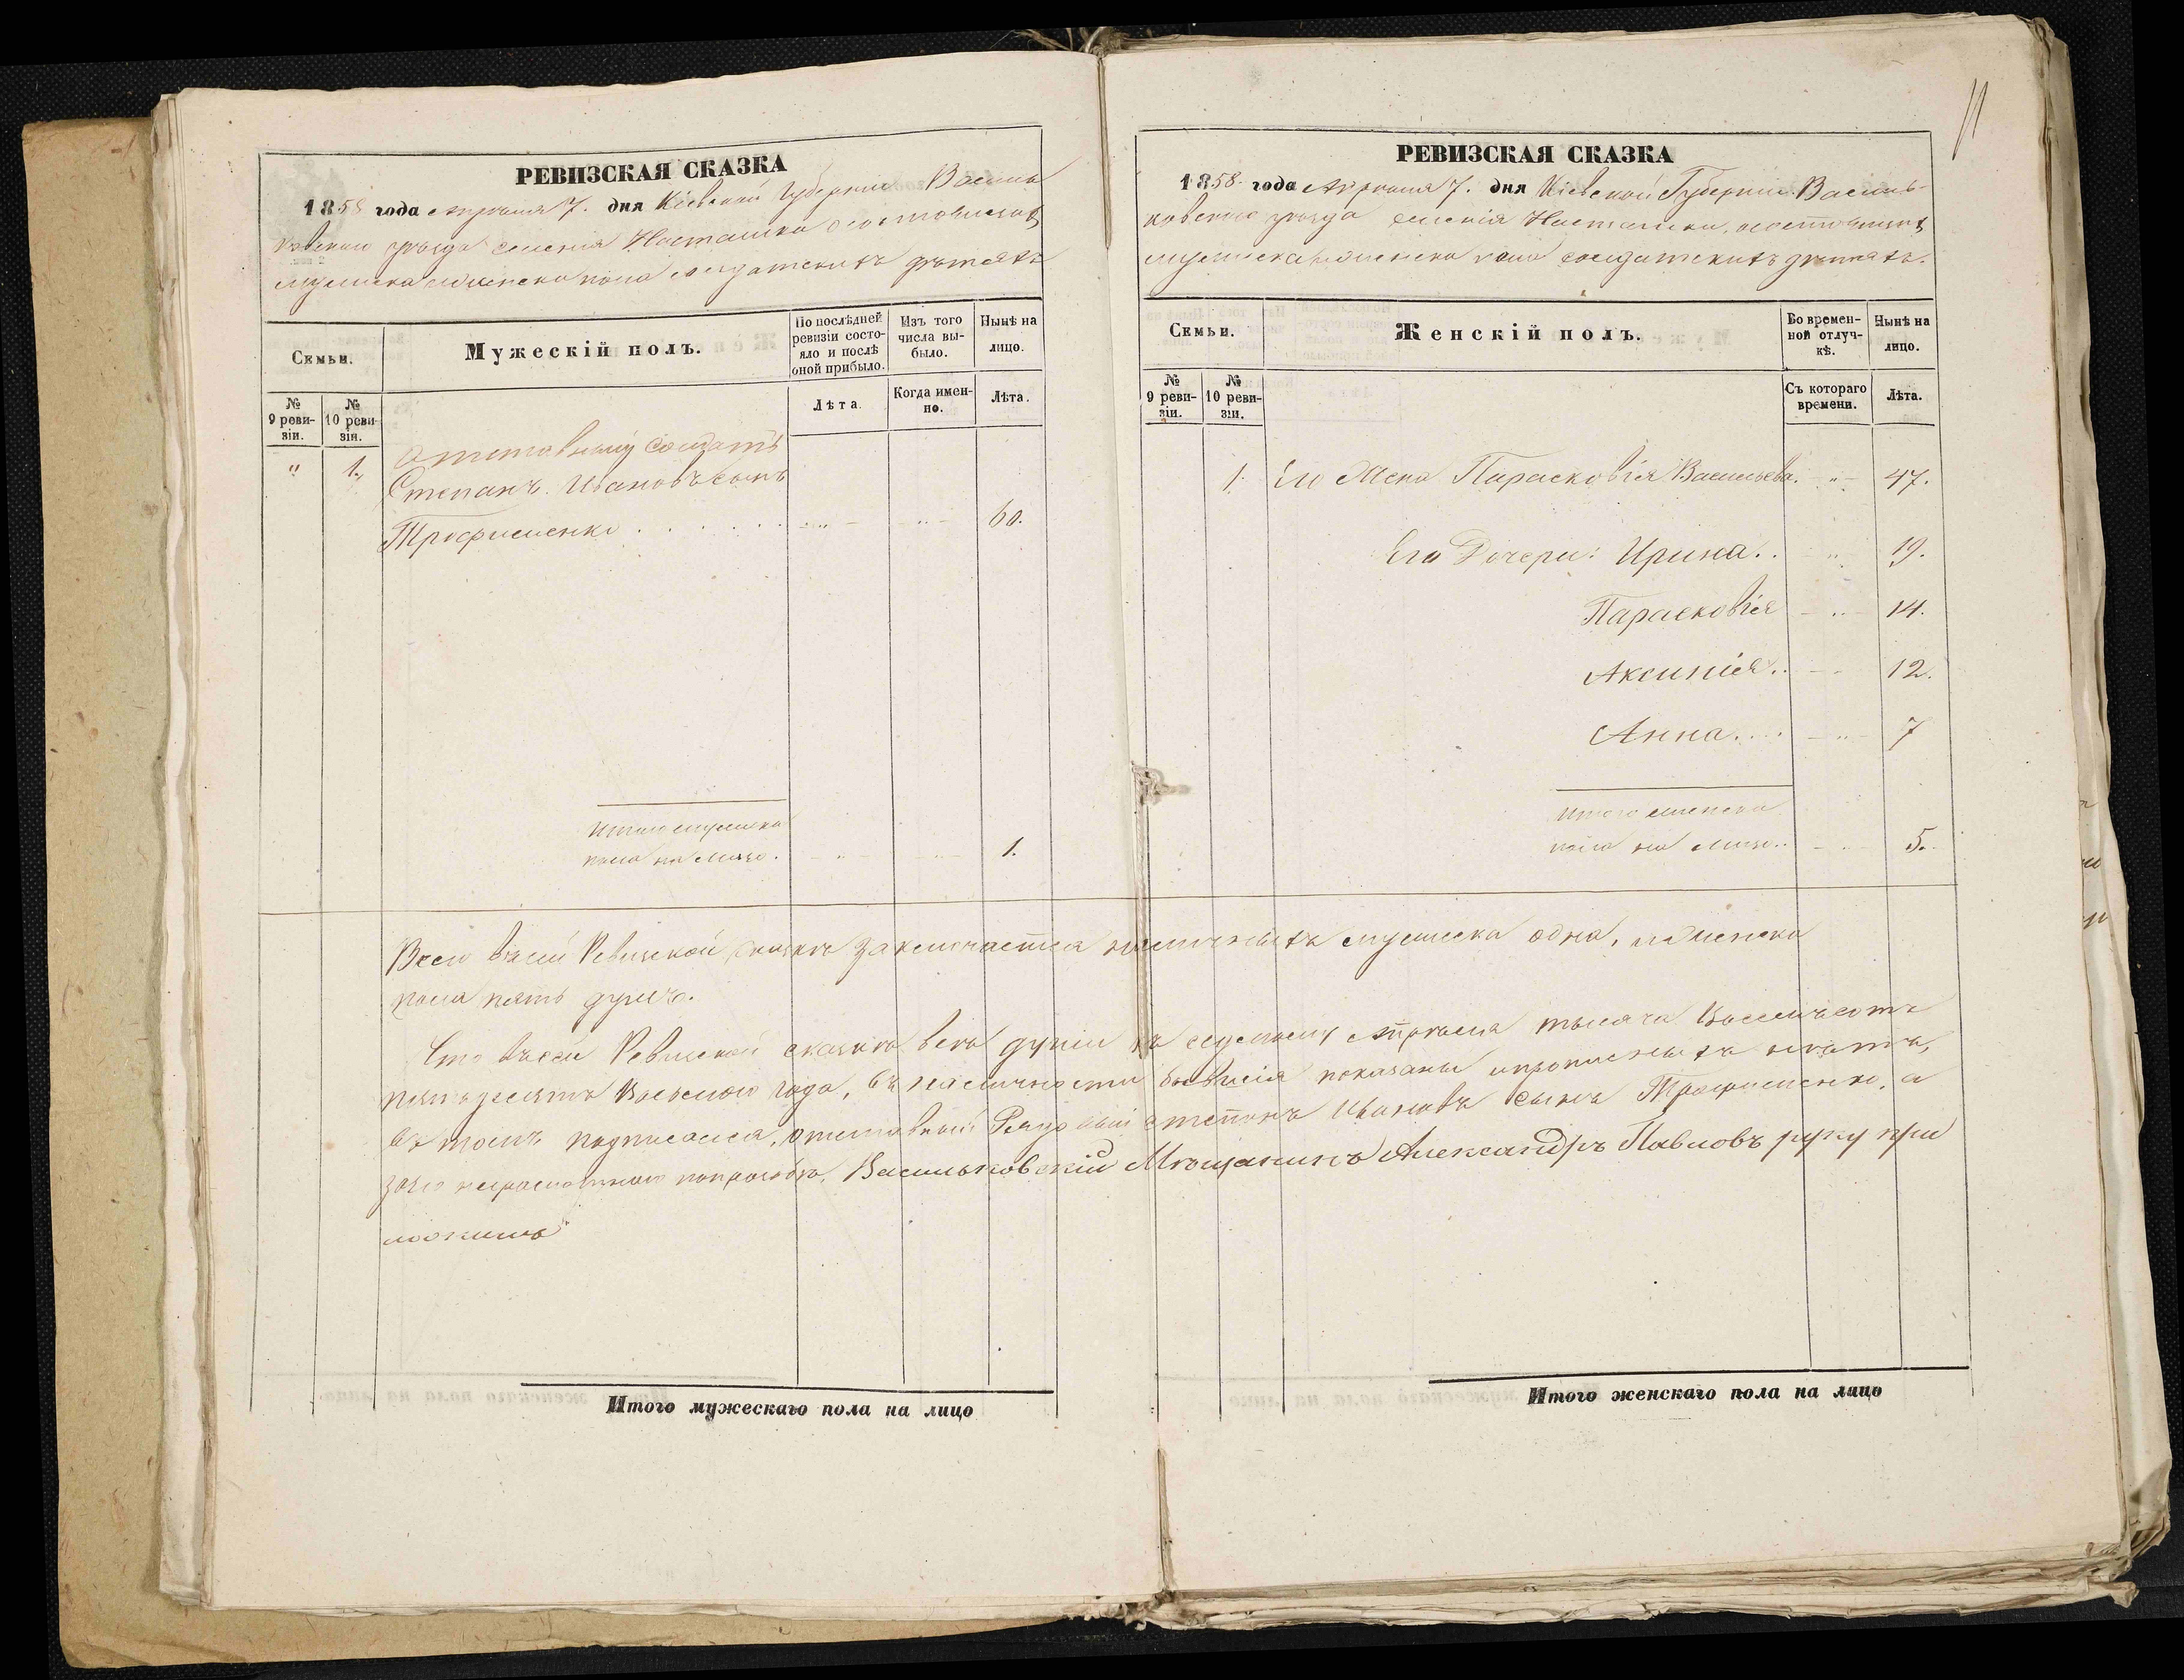 11
РЕВИЗСКАЯ СКАЗКА
1858 года Апрѣля 7. дня Кіевской Губерніи Василь
ковскаго уѣзда селенія Насташки о состоящихъ
мужеска и женска пола солдатскихъ дѣтяхъ
Семьи.
Мужескій полъ.
По послѣдней ревизіи состояло и послѣ оной прибыло.
Изъ того числа выбыло.
Нынѣ на лицо.
№ 9 ревизіи.
№ 10 ревизіи.
Лѣта.
Когда именно.
Лѣта.
" 1. Отставный Солдатъ
Степанъ Ивановъ сынъ
Трофименко . . . . . . . - " - - " - 60.
Итого мужеска
пола на лицо. - " - - " - 1.
РЕВИЗСКАЯ СКАЗКА
1858 года Апрѣля 7. дня Кіевской Губерніи Василь-
ковскаго уѣзда селенія Насташки, о состоящихъ
мужеска и женска пола солдатскихъ дѣтяхъ.
Семьи.
Женскій полъ.
Во временной отлучкѣ.
Нынѣ на лицо.
№ 9 ревизіи.
№ 10 ревизіи.
Съ котораго времени.
Лѣта.
1. Его Жена Парасковія Васильева. - " - 47.
Его Дочери: Ирина . . - " - 19.
Парасковія - " - 14.
Аксинія . . - - 12.
Анна . . . . - " - 7
Итого женска
пола на лицо . . - - 5.
Всего въ сей Ревизской сказкѣ заключается наличныхъ мужеска одна, и женска
пола пять душъ.
Что въ сей Ревизской сказкѣ всѣ души къ седьмому Апрѣля тысяча восемъсотъ
пятьдесятъ восьмаго года, въ наличности бывшія показаны и прописныхъ нѣтъ,
въ томъ подписался, отставный Рядовый Степанъ Ивановъ сынъ Трофименко, а
за него неграмотнаго по просьбѣ, Васильковскій Мѣщанинъ Александръ Павловъ руку при
ложилъ
Итого мужескаго пола на лицо
Итого женскаго пола на лицо